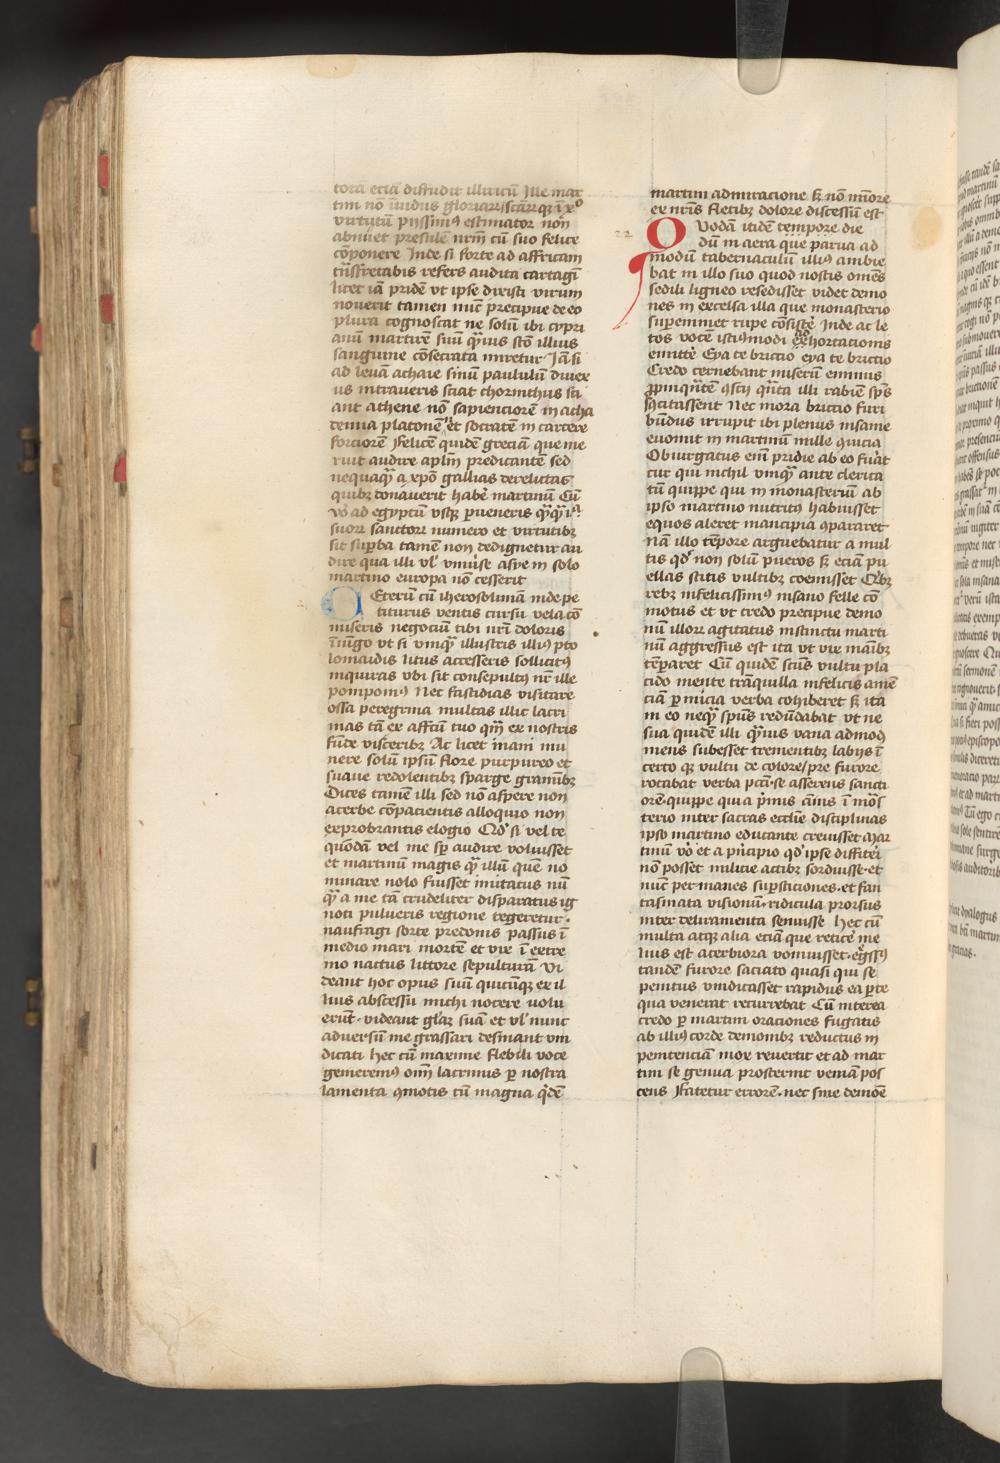 tota eciā diffudit illiricū Ille mar
tini nō īuidus gloriarꝫ scārꝫqꝫ ī xᵒ
virtutū pijssimꝰ estimator non
abnuet presulē nrm̄ cū suo felice
cōponere Inde si forte ad affricam
refers audita cartagi
licet iā pridē vt ipse dixisti virum
nouerit tamen nūc precipue de eo
plura cognoscat ne solū ibi cypri
anū martirē suū stō illius
sanguine cōsecrata miretur Iā si
ad leuā achaie sinū paululū diuex
us intraueris sciat chorinthus sci
ant athene nō sapienciorē in acha
temia platonē et socratē in carcere
forciorē ffelicē quidē greciā que me
ruit audire aplm̄ predicantē sed
nequaqͣ a xpō gallias derelictas
quibꝫ donauerit habē martinū Cū
vͦo ad egyptū vsqꝫ pueneris
suorꝫ sanctorꝫ numero et virtutibꝫ
sit supba tamē non dedignetur au
dire qua illi vl' vniuse asye in solo
martino europa nō cesserit
Ceterū cū iherosolimā inde pe
titurus ventis cursu vela cō
miseris negociū tibi nrī doloris
īiūgo vt si vmqͣ illustris illiꝰ pto
lomaidis litus accesseris sollicitꝰ
inquiras vbi sit consepultꝰ nr̄ ille
pomponiꝰ Nec fastidias visitare
ossa peregrina multas illic lacri
mas tā ex affctū tuo qm̄ ex nostris
fūde visceribꝫ Ac licet inani mu
nere solū ipsū flore purpureo et
suaue redolentibꝫ sparge graminībꝫ
Dices tamē illi sed nō aspere non
acerbe cōpacientis alloquio non
exprobrantis elogio Qd' si vel te
quōdā vel me sp̄ audire voluisset
et martinū magis qͣ illū quē no
minare nolo fuisset imitatus nū
qͣ a me tā crudeliter disparatus ig
noti pulueris regione tegeretur
naufragi sorte predonis passus ī
medio mari mortē et vix ī extre
mo nactus littore sepulturā Vi
deant hoc opus suū quicūqꝫ ex il
lius abscessu michi nocere volu
erūt videant glaꝫ suā et vl' nunc
aduersū me grassari desinant vin
dicati Hec cū maxime flebili voce
gemeremꝰ oīm lacrimis p nostra
lamenta qmotis cū magna qͥdē
martini admiracione sꝫ nō minore
ex nrīs fletibꝫ dolore discessū est
22
Quodā itidē tempore die
dū in aera que parua ad
modū tabernaculū illiꝰ ambie
bat in illo suo quod nostis omēs
sedili ligneo resedisset videt demo
nes in excelsa illa que monasterio
supeminet rupe cōsistē Inde ac le
tos vocē istiꝰmodi exhortacionis
emittē Eya te briccio eya te briccio
Credo cernebant miserū eminus
ppinqntē qscij qnta illi rabiē spūs
sscitassent Nec mora briccio furi
būdus irrupit ibi plenus insanie
euomit in martinū mille quicia
Obiurgatus enī pridie ab eo fuāt
cur qui nichil vmqͣ ante clerica
tū quippe qui in monasteriū ab
ipso martino nutritꝰ habuisset
equos aleret mancipia qpararet
Nā illo tēpore arguebatur a mul
tis qd' non solū pueros sꝫ eciā pu
ellas scitis vultibꝫ coemisset Qͥbꝫ
rebꝫ infelicissimꝰ insano felle cō
motus et vt credo precipue demo
nū illorꝫ agitatus instinctu marti
nū aggressus est ita vt vix manībꝫ
tēparet Cū quidē sctūs vultu pla
cido mente trāquilla infelicis amē
ciā p micia verba cohiberet sꝫ ita
in eo neqͣ spūs redūdabat vt ne
sua quidē illi qͥuis vana admodꝫ
mens subesset trementibꝫ labijs ī
certo qꝫ vultu de colore pre furore
rotabat verba pctī se asserens sancti
orē quippe qui a pͥmis ānis ī mōs
terio inter sacras ecclīe disciplinas
ipso martino educante creuisset Mar
tinū vͦo et a pͥncipio qd' ipse diffitēi
nō posset milicie actibꝫ sorduisse et
nūc per inanes supsticiones et fan
tasmata visionū ridicula prorsus
inter deliramenta senuisse Hec cū
multa atqꝫ alia eciā que reticē me
lius est acerbiora vomuisset egssꝰ
tandē furore saciato quasi qui se
penitus vindicasset rapidus ea pte
qua venerat recurrebat Cū interea
credo p martini oraciones fugatis
ab illiꝰ corde demonibꝫ reductus in
penitenciā mox reuertit et ad mar
tini se genua prosternit veniā pos
cens ffatetur errorē nec sine demōe